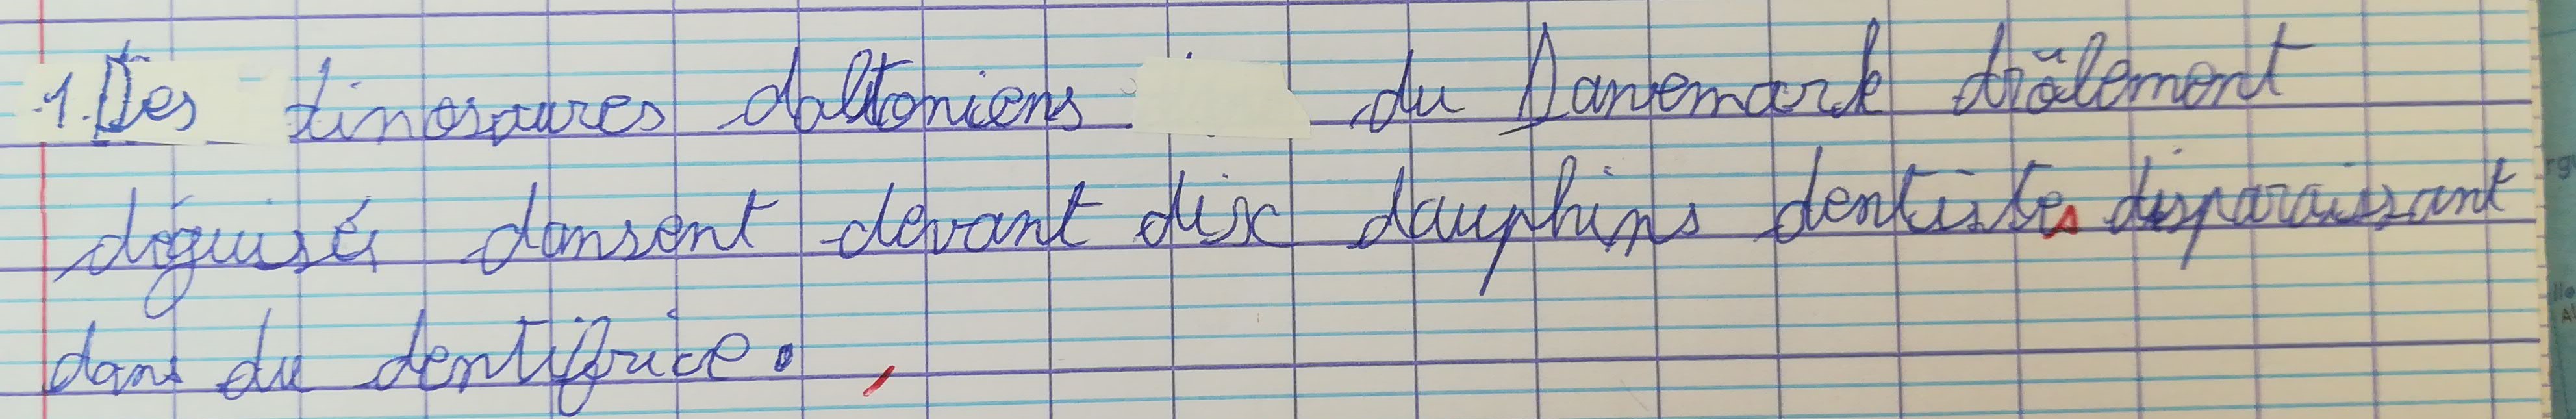 1. Des dinosaures daltoniens du Danemark drôlement
déguisés dansent devant dix dauphins dentistes disparaissant
dans du dentifrice.